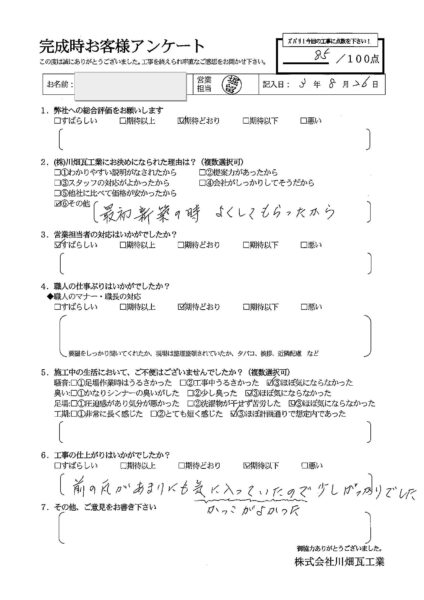 完成時お客様アンケート
この度は誠にありがとうございました。工事を終えられ率直なご感想をお聞かせ下さい。
ズバリ！今回の工事に点数を下さい！
85/100点
お名前：
営業担当
記入日：3年8月26日
1．弊社への総合評価をお願いします
□すばらしい □期待以上 ☑期待どおり □期待以下 □悪い
2．(株)川畑瓦工業にお決めになられた理由は？（複数選択可）
□①わかりやすい説明がなされたから □②提案力があったから
□③スタッフの対応がよかったから □④会社がしっかりしてそうだから
□⑤他社に比べて価格が安かったから
☑⑥その他
最初新築の時よくしてもらったから
3．営業担当者の対応はいかがでしたか？
☑すばらしい □期待以上 □期待どおり □期待以下 □悪い
4．職人の仕事ぶりはいかがでしたか？
◆職人のマナー・職長の対応
□すばらしい □期待以上 ☑期待どおり □期待以下 □悪い
要望をしっかり聞いてくれたか、現場は整理整頓されていたか、タバコ、挨拶、近隣配慮 など
5．施工中の生活において、ご不便はございませんでしたか？（複数選択可）
騒音：□①足場作業時はうるさかった □②工事中うるさかった ☑③ほぼ気にならなかった
臭い：□①かなりシンナーの臭いがした □②少し臭った ☑③ほぼ気にならなかった
足場：□①圧迫感があり気分が悪かった □②洗濯物が干せず苦労した ☑③ほぼ気にならなかった
工期：□①非常に長く感じた □②とても短く感じた ☑③ほぼ計画通りで想定内であった
6．工事の仕上がりはいかがでしたか？
□すばらしい □期待以上 ☑期待どおり □期待以下 □悪い
前の瓦があまりにも気に入っていたので少しがっかりでした
かっこがよかった
7．その他、ご意見をお書き下さい
御協力ありがとうございました。
株式会社川畑瓦工業